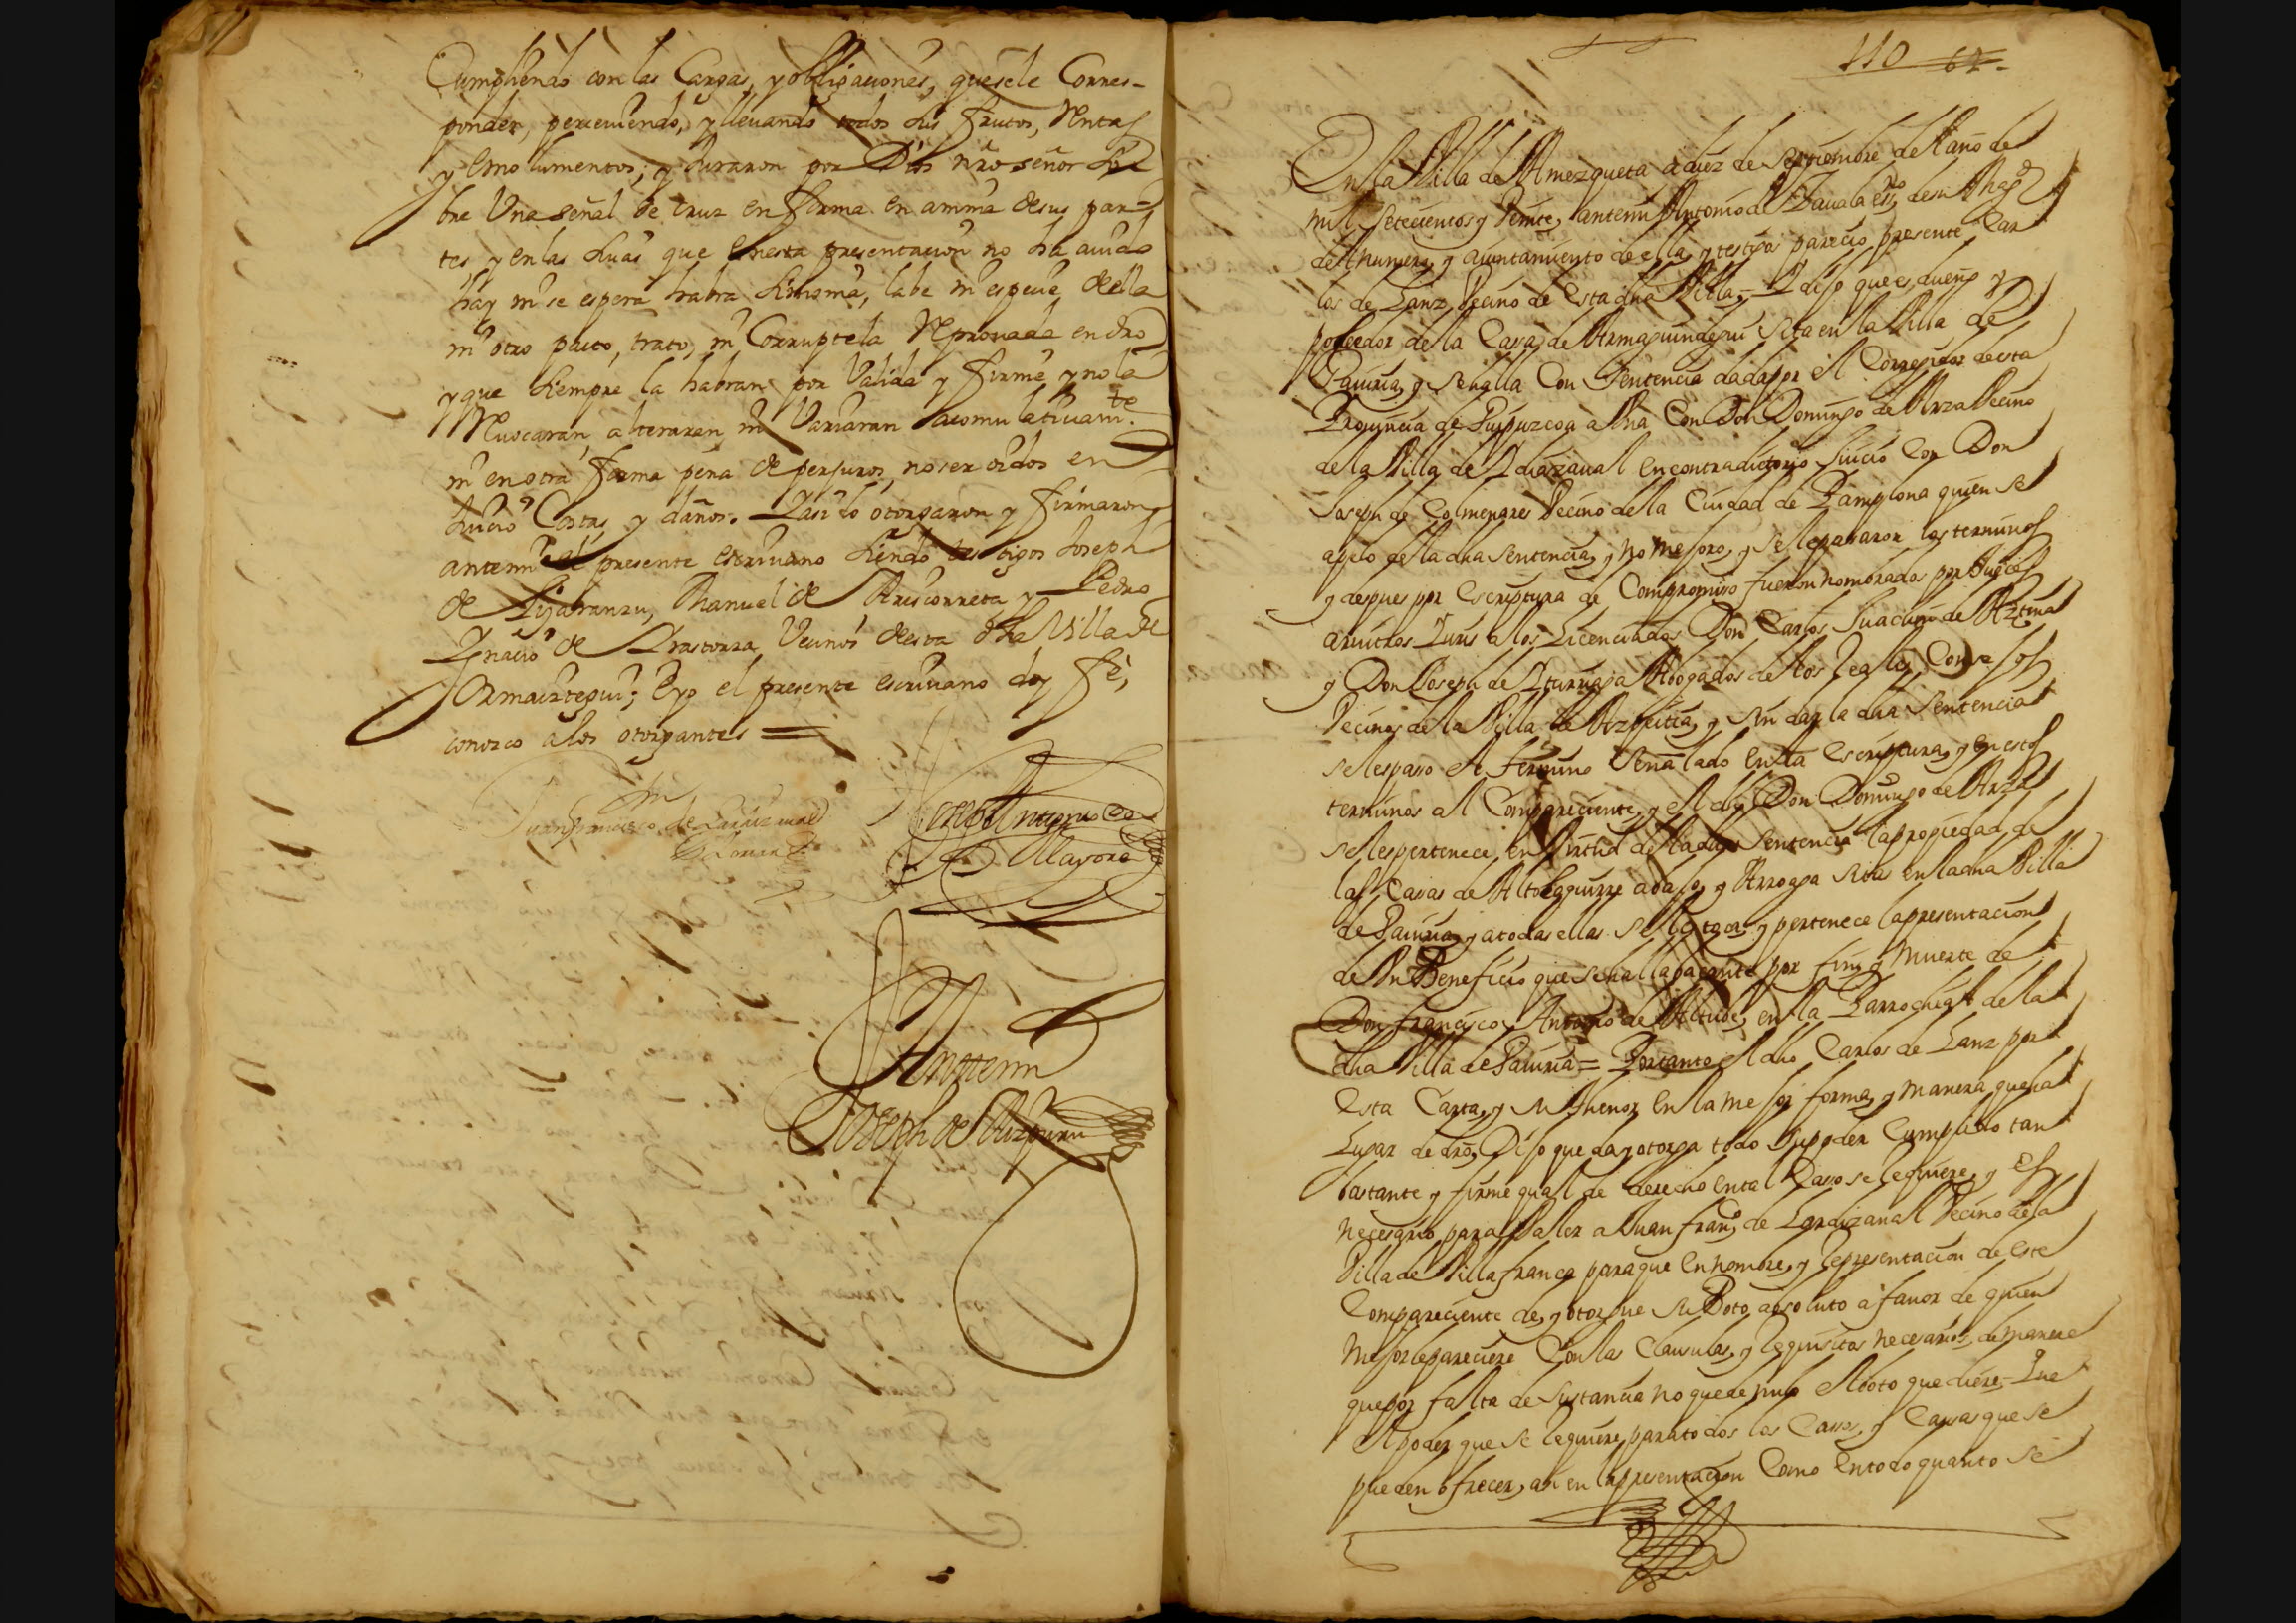 Cumpliendo con las Cargas, y obligaciones, que se le Corres-
ponden, perceuiendo, y lleuando todos sus frutos, Rentas
y emolumentos; y Juraron por Dios nro señor so
bre Una señal de cruz en forma en amma de sus par-
tes, y en las suas que en esta presentacion no ha auido
hay ni se espera habra simonia, labe ni especie de ella
ni otro pacto, trato, ni Corruptela Reprouada en dro
y que siempre la habran por Valida y firme y no la
Reuocaran alteraran ni Variaran tacomulatiuamte
ni en otra forma pena de perjuros, no ser oidos en
Juicio Costas y daños. Y asi lo otorgaron y firmaron
antemi el presente escriuano siendo testigos Joseph
de Lizabranzu, Manuel de Ariscorreta y Pedro
Ygnacio de Yrastorza Vecinos de esta dha Villa de
Ormaiztegui; E yo el presente escriuano doy fe,
conozco a los otorgantes =
Juan Francisco de Lardizaual
Joseph Antonio de
Mayora
Antemi
Joseph de Aizpuru
110 62
En la Villa de Amezqueta a diez de septiembre de el año de
mil setecientos y Veinte, antemi Antonio de Zauala essno de su Magd
del numero, y aiuntamiento de ella, y testigos parecio presente Car
los de Lanz Vecino de esta dha Villa, = Y dijo que es dueño y
posseedor de la Casa de Armaguindegui sita en la Villa de
Gauiria, y se halla Con Sentencia dada por el Corregidor de esta
Prouincia de Guipuzcoa a Una Con Don Domingo de Arza Vecino
de la Villa de Ydiazaual en contradictorio Juicio Con Don
Joseph de Colmenares Vecino de la Ciudad de Pamplona quien se
apelo de la dha Sentencia, y no mejoro, y se le pasaron los terminos
y despues por escriptura de Compromiso fueron nombrados por Jueces
arbitros Juris a los Licenciados Don Carlos Juachin de Aztina
y Don Joseph de Yturriaga Abogados de los Reales Consejos
Vecinos de la Villa de Azpeitia, y sin dar la dha Sentencia
se les paso el termino señalado en la escriptura, y en estos
terminos al Compareciente, y el dho Don Domingo de Arza
se les pertenece, en Virtud de la dha Sentencia la propiedad de
las Casas de Altolaguirre abajo, y Arroaga sitas en la dha Villa
de Gauiria, y a todas ellas se les toca, y pertenece la presentacion
de Un Beneficio que se halla bacante por fin, y muerte de
Don Francisco Antonio de Altube, en la Parrochial de la
dha Villa de Gauiria = Por tanto el dho Carlos de Lanz por
esta Carta, y su thenor en la mejor forma, y manera que ha
Lugar de dro, Dijo que da, y otorga todo su poder Cumplido tan
bastante y firme qual de derecho en tal Caso se requiere, y es
necesario para Valer a Juan Franco de Lardizaual Vecino de la
Villa de Villafranca para que en nombre, y representacion de este
Compareciente de, y otorgue su Voto absoluto a fauor de quien
mejor le pareciere Con las Clausulas, y requisitos necesarios, de manera
que por falta de sustancia no quede nulo el Voto que diere, = Que
el poder que se requiere, para todos los Casos, y Cosas que se
pueden ofrecer, asi en la presentacion Como en todo quanto se